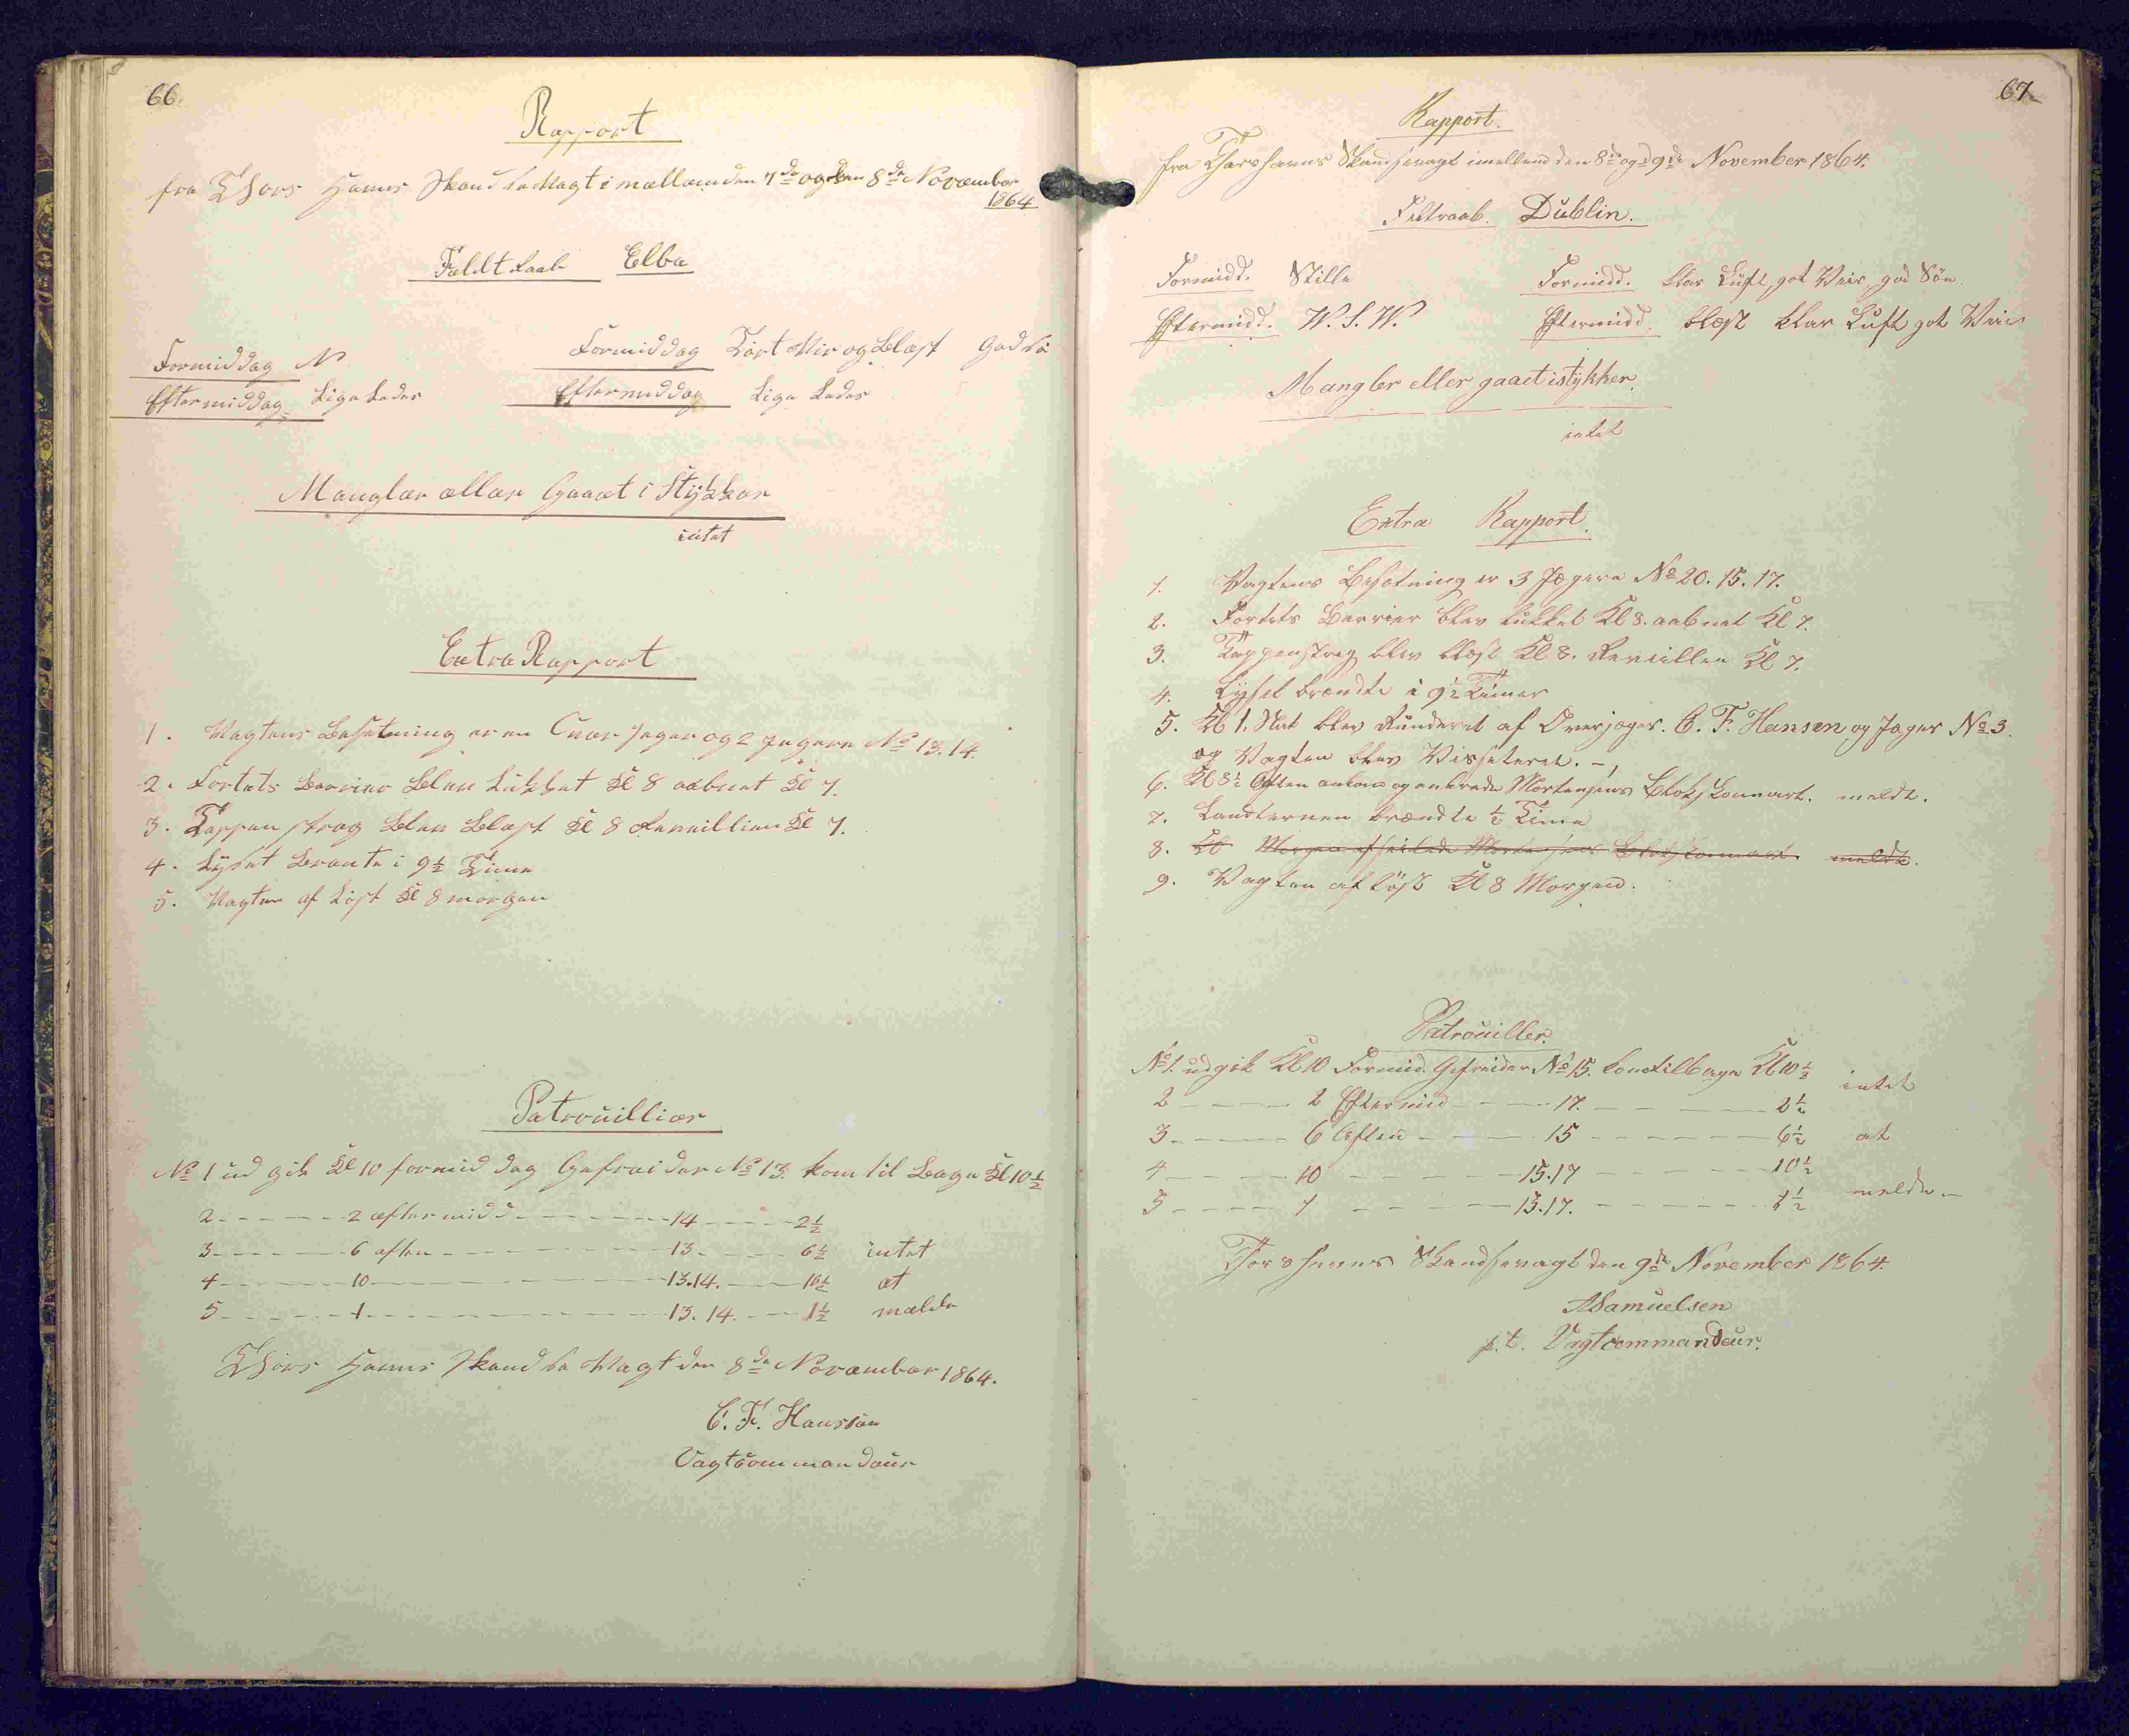 66.
Rapport
fra Thors Havns Skandse Vagt imellem den 7de og den 8de November
1864
Feldt Raab Elba
Formiddag N Formiddag Tört Veir og Blæst God Sö
Eftermiddag Lige Ledes Eftermiddag Lige Ledes
Mangler eller Gaaet i Stykker
intet
Extra Rapport
1. Vagtens Besetning er en Jeger og 2 Jegere No 13. 14.
2. Fortets Barrier Blev Lukket Kl 8 aabnet Kl 7.
3. Tappenstreg Blev Blæst Kl 8 Reveillien Kl 7.
4. Lyset Brente i 9½ Time
5. Vagten af Löst Kl 8 morgen
Patrouillier
No 1 ud gik Kl 10 formid dag Gefreider No 13. kom til Bage Kl 10½
2 - - - - - 2 eftermidd - - - - - 14 - - - - 2½
3 - - - - - 6 aften - - - - - 13 - - - - 6½ intet
4 - - - - - 10 - - - - - 13.14. - - - 10½ at
5 - - - - - 1 - - - - - 13. 14. - - 1½ melde
Thors Havns Skandse Vagt den 8de November 1864.
C. F. Hansen
Vagtcommandeur
67.
Rapport.
fra Thorshavns Skandsevagt imellem den 8de og 9de November 1864.
Feltraab. Dublin.
Formidd. Stille Formidd. klar Luft, got Veir, god Söe.
Eftermidd. W. S. W. Eftermidd. blæst klar Luft got Veir
Mangler eller gaaet istykker.
intet
Extra Rapport.
1. Vagtens Besætning er 3 Jægere No 20. 15. 17.
2. Fortets Barrier blev lukket Kl 8. aabnet Kl 7.
3. Tappenstreg blev blæst Kl 8. Reveillen Kl 7.
4. Lyset brændte i 9½ Timer
5. Kl 1. Nat blev Runderet af Overjæger. C. F. Hansen og Jæger No 3.
og Vagten blev Visiteret. -,
6. Kl 8½ Aften ankom og ankrede Mortensens Slokskonnart. meldt.
7. Lanternen brændte ½ Time
8. Kl Morgen afseilede Mortensens Slokskonnart. meldt.
9. Vagten aflöst Kl 8 Morgen.
Patrouiller.
No 1. udgik Kl 10 Formid. Gefreider No 15. kom tilbage Kl 10½ intet
2 - - - - 2 Eftermid - - - 17. - - - - 2½
3 - - - - 6 Aften - - - 15 - - - - 6½ at
4 - - - - 10 - - - - 15.17 - - - - 10½
5 - - - - 1 - - - - 15.17. - - - - 1½ melde. -
Thorshavns Skandsevagt den 9de November 1864.
A Samuelsen
p. t. Vagtcommandeur.